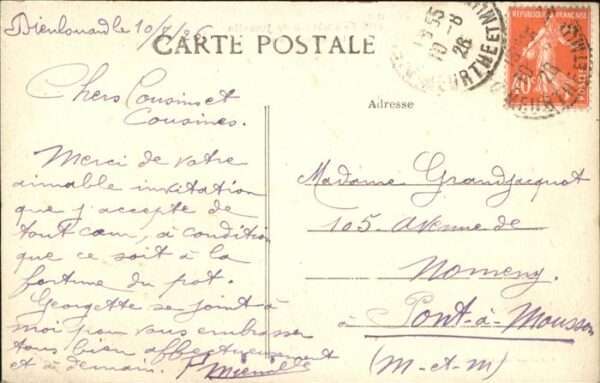 Dieulouard le 10/8/26
CARTE POSTALE
Chers Cousins et
Cousines.
Merci de votre
aimable invitation
que j'accepte de
tout cœur, à condition
que ce soit à la
fortune du pot.
Georgette se joint à
moi pour vous embrasser
tous bien affectueusement
et à demain.
Adresse
Madame Grandjacquot
105 Avenue de
Nomeny.
à Pont-à-Mousson
(M-et-M)
REPUBLIQUE FRANÇAISE
40c
MEURTHE ET M
10 - 8
26